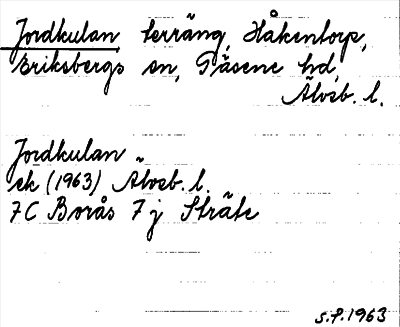 Jordkulan, terräng, Håkentorp,
Eriksbergs sn, Gäsene hd,
Älvsb. l.
Jordkulan
ek (1963) Älvsb. l.
7C Borås 7 j Sträte
s.f. 1963